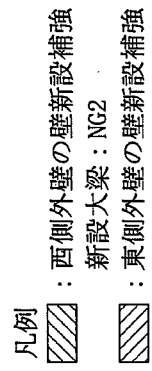 凡例
：西側外壁の壁新設補強
新設大梁：NG2
：東側外壁の壁新設補強